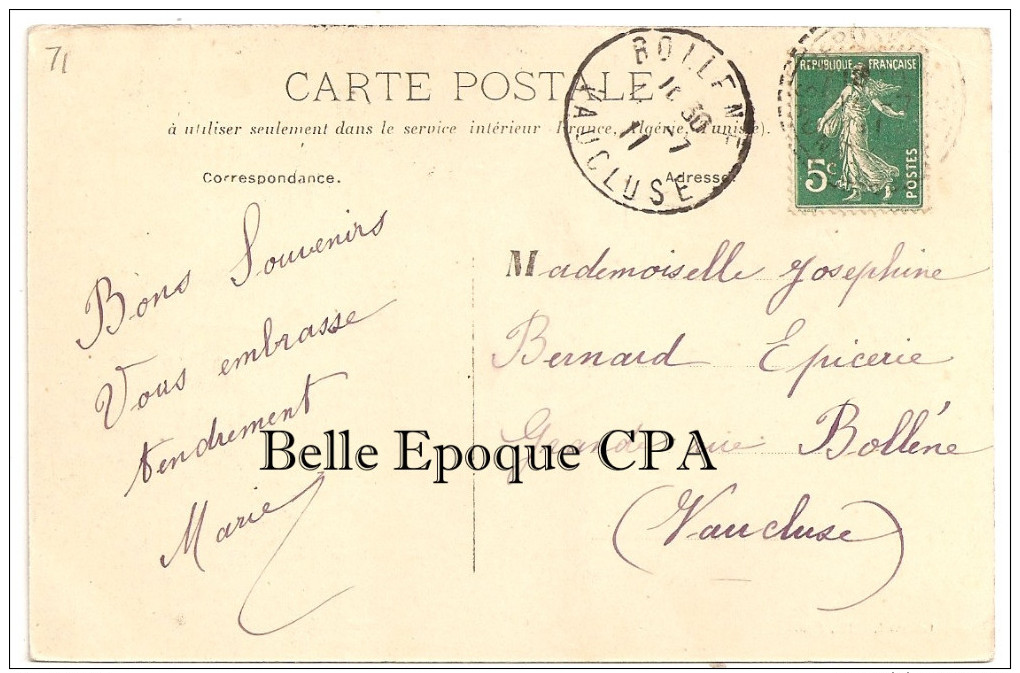 71
CARTE POSTALE
à utiliser seulement dans le service intérieur (France, Algérie, Tunisie).
Correspondance.
Adresse
BOLLENE
16 30
7
11
VAUCLUSE
REPUBLIQUE FRANÇAISE
5c
POSTES
Bons Souvenirs
Vous embrasse
tendrement
Marie
Mademoiselle Josephine
Bernard Epicerie
Grande rue Bollène
(Vaucluse)
Belle Epoque CPA